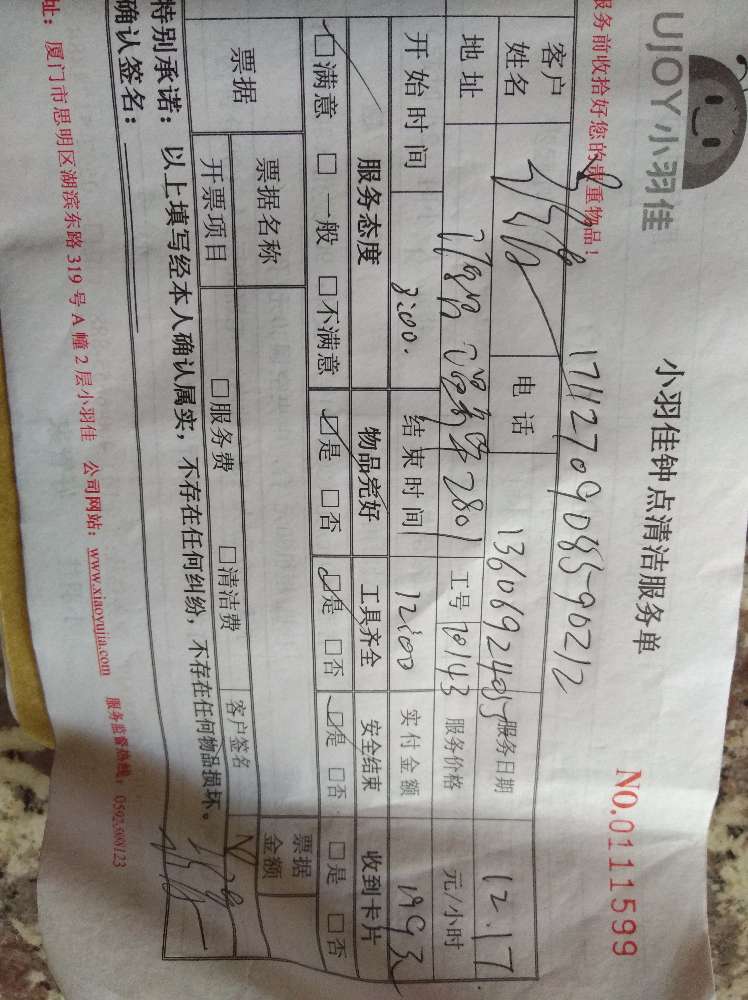 UJOY小羽佳
小羽佳钟点清洁服务单
NO.0111599
服务前收拾好您的贵重物品！
1711270908590212
客户姓名 电话 13606924085 服务日期 12.17
地址 2801 工号 70143 服务价格 元/小时
开始时间 8:00. 结束时间 12:00 实付金额 199元
服务态度 物品完好 工具齐全 安全结束 收到卡片
□满意 □一般 □不满意 □是 □否 □是 □否 □是 □否 □是 □否
票据 票据名称 票据金额
开票项目 □服务费 □清洁费 客户签名
特别承诺：以上填写经本人确认属实，不存在任何纠纷，不存在任何物品损坏。
确认签名：
址：厦门市思明区湖滨东路319号A幢2层小羽佳 公司网站：www.xiaoyujia.com 服务监督热线：